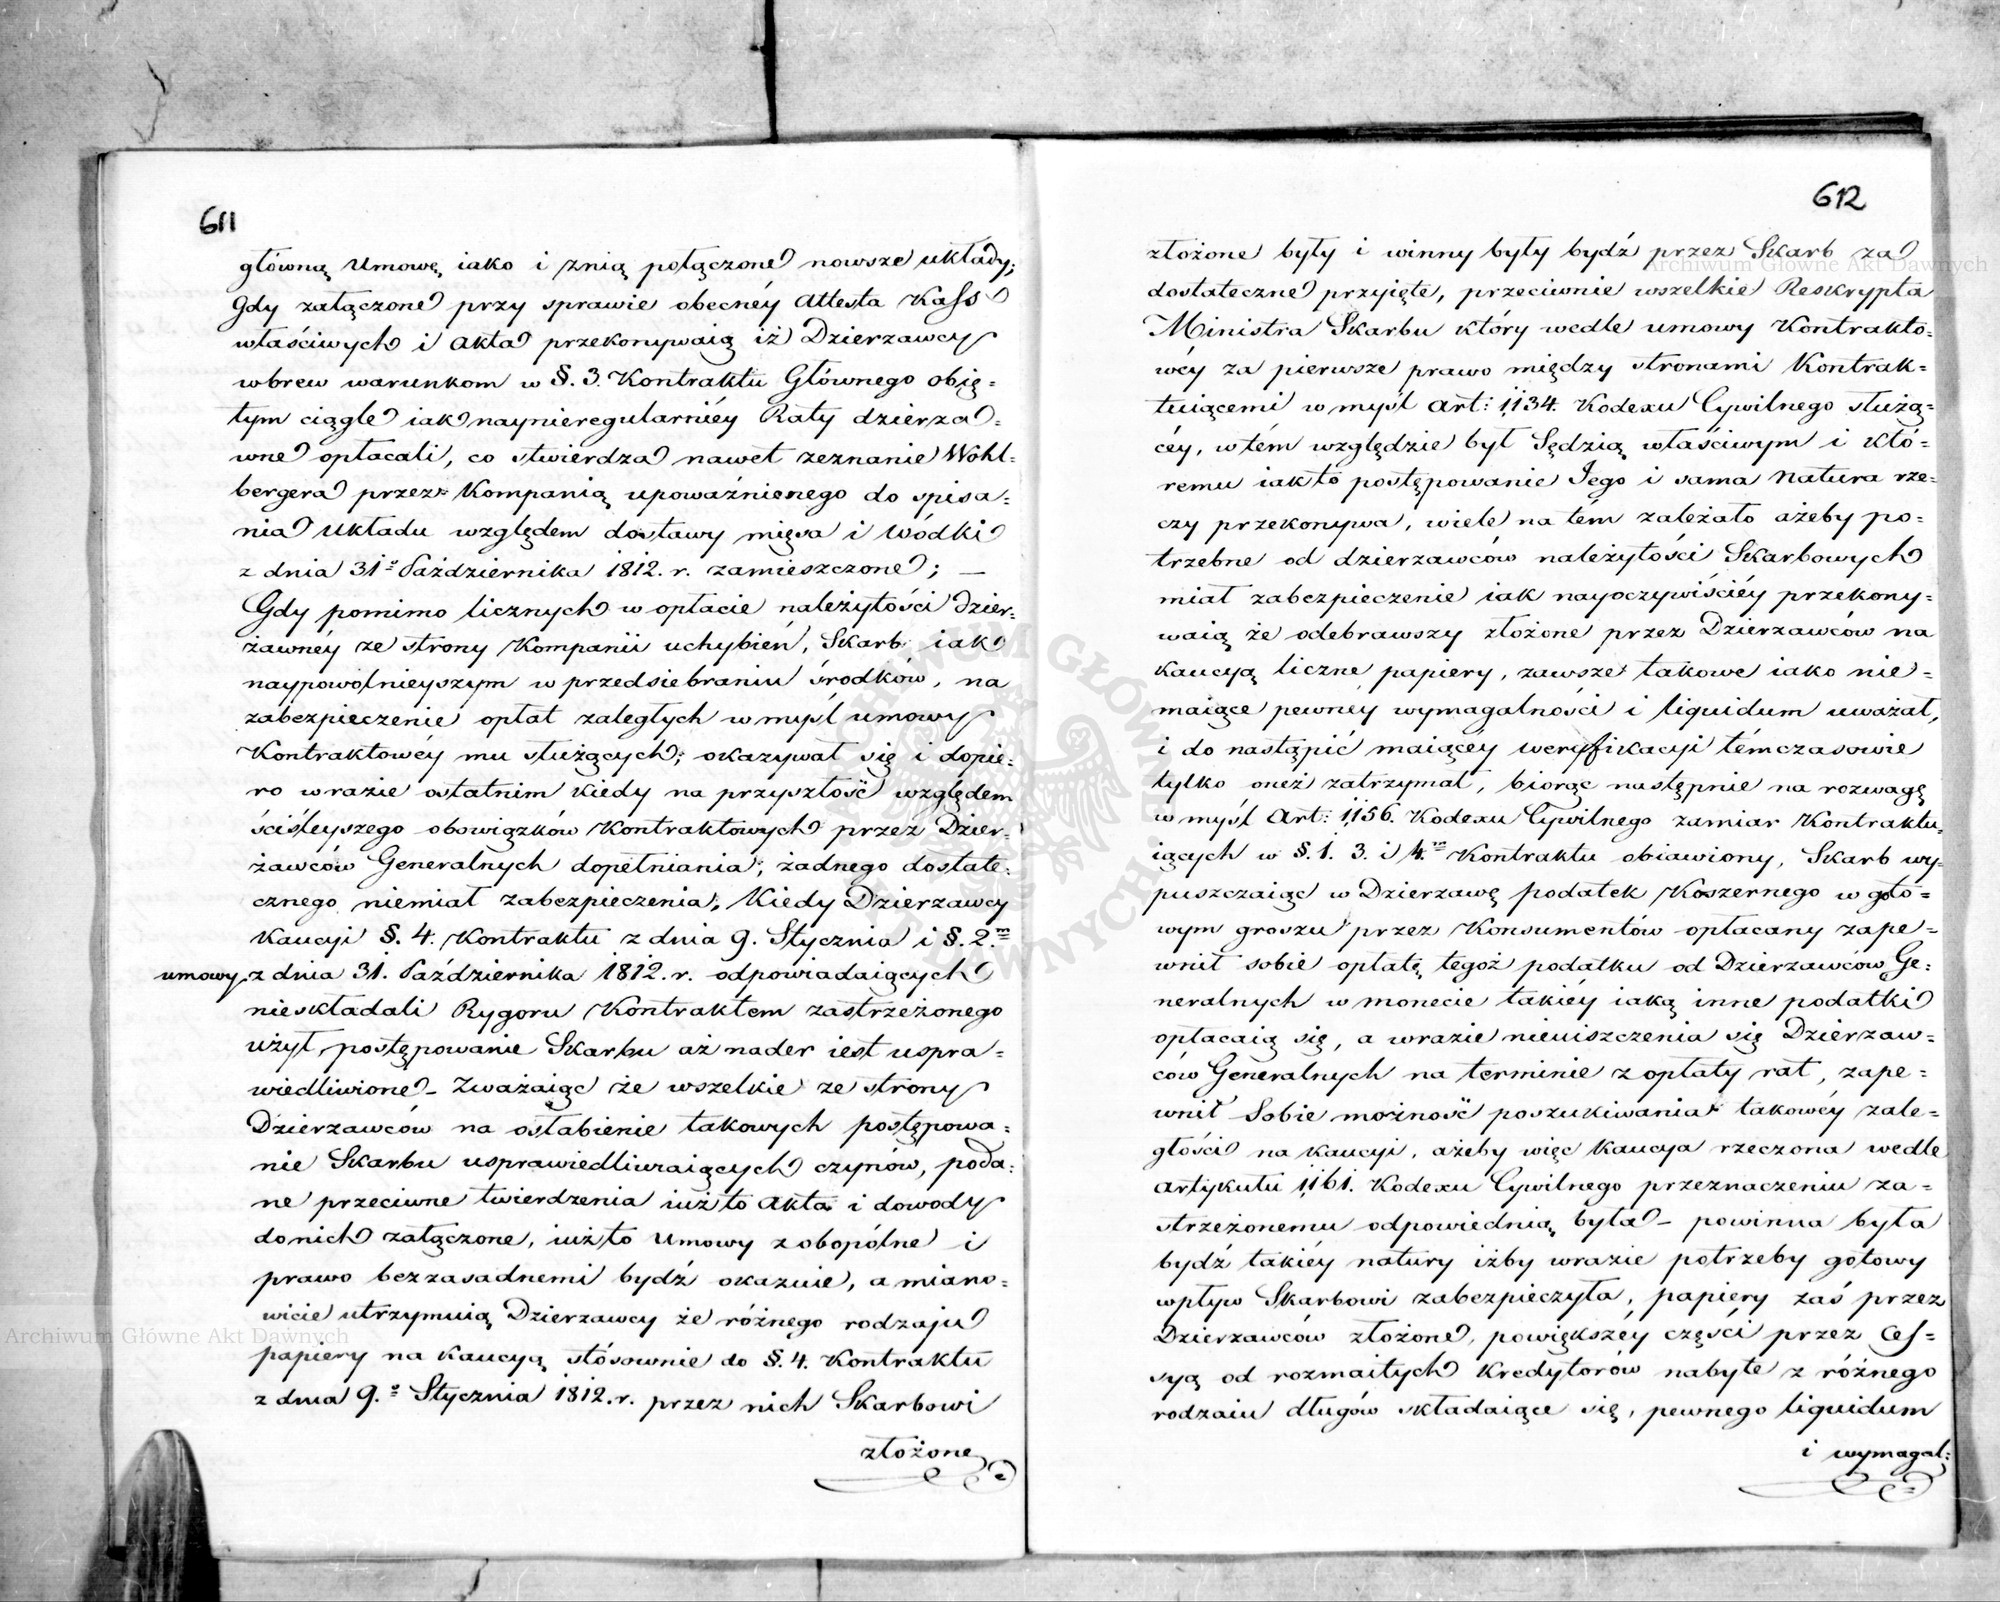 611
główną Umowę, iako i znią połączone nowsze układy;
Gdy załączone przy sprawie obecnéy Attesta Kass
właściwych i Akta przekonywaią iż Dzierzawcy
wbrew warunkom w §. 3. Kontraktu Głównego obię=
tym ciągle iak naynieregularniéy Raty dzierza=
wne opłacali, co stwierdza nawet zeznanie Wohl=
bergera przez Kompanią upoważnionego do spisa=
nia Układu względem dostawy mięsa i Wódki
z dnia 31º Października 1812. r. zamieszczone; —
Gdy pomimo licznych w opłacie należytości dzier=
żawnéy ze strony Kompanii uchybień, Skarb iak
naypowolnieyszym w przedsiebraniu środków, na
zabezpieczenie opłat zaległych w myśl umowy
Kontraktowéy mu służących; okazywał się i dopie=
ro w razie ostatnim kiedy na przyszłość względem
ściśleyszego obowiązków Kontraktowych przez Dzier=
żawców Generalnych dopełniania; żadnego dostate=
cznego niemiał zabezpieczenia, Kiedy Dzierzawcy
Kaucyi §. 4. Kontraktu z dnia 9. Stycznia i §. 2.m
umowy z dnia 31. Października 1812. r. odpowiadaiących
nieskładali Rygoru Kontraktem zastrzeżonego
użył, postępowanie Skarbu aż nader iest uspra=
wiedliwione – Zważaiąc że wszelkie ze strony
Dzierzawców na osłabienie takowych postępowa=
nie Skarbu usprawiedliwiaiących czynów, poda=
ne przeciwne twierdzenia iuż to Akta i dowody
do nich załączone, iuż to Umowy z obopólne i
prawo bezzasadnemi bydź okazuie, a miano=
wicie utrzymuią Dzierzawcy że różnego rodzaju
papiery na Kaucyą stósownie do §. 4. Kontraktu
z dnia 9.º Stycznia 1812. r. przez nich Skarbowi
złożone
612
złożone były i winny były bydź przez Skarb za
dostateczne przyięte, przeciwnie wszelkie Reskrypta
Ministra Skarbu który wedle umowy Kontrakto=
wéy za pierwsze prawo między stronami Kontrak=
tuiącemi w myśl Art: 1134. Kodexu Cywilnego służą=
céy, w tém względzie był Sędzią właściwym i któ=
remu iak to postępowanie Jego i sama Natura rze=
czy przekonywa, wiele na tém zależało ażeby po=
trzebne od dzierzawców należytości Skarbowych
miał zabezpieczenie iak nayoczywiściéy przekony=
waią że odebrawszy złożone przez Dzierzawców na
kaucyą liczne papiery, zawsze takowe iako nie=
maiące pewnéy wymagalności i liquidum uważał,
i do nastąpić maiącéy weryfikacyi témczasowie
tylko oneż zatrzymał, biorąc następnie na rozwagę
w myśl Art: 1156. Kodexu Cywilnego zamiar Kontraktu=
iących w §. 1. 3. i 4.m Kontraktu obiawiony, Skarb wy=
puszczaiąc w Dzierzawę podatek Koszernego w goto=
wym groszu przez Konsumentów opłacany zape=
wnił sobie opłatę tegoż podatku od Dzierzawców Ge=
neralnych w monecie takiéy iaką inne podatki
opłacaią się, a w razie nieuiszczenia się Dzierzaw=
ców Generalnych na terminie z opłaty rat, zape=
wnił Sobie możność poszukiwania takowéy zale=
głości na kaucyi, ażeby więc Kaucya rzeczona wedle
Artykułu 1161. Kodexu Cywilnego przeznaczeniu za=
strzeżonemu odpowiednią była – powinna była
bydź takiéy natury iżby w razie potrzeby gotowy
wpływ Skarbowi zabezpieczyła, papiery zaś przez
Dzierzawców złożone, powiększéy części przez Ces=
syą od rozmaitych Kredytorów nabyte z różnego
rodzaiu długów składaiące się, pewnego liquidum
i wymagal=
Archiwum Główne Akt Dawnych
Archiwum Główne Akt Dawnych
ARCHIWUM GŁÓWNE AKT DAWNYCH